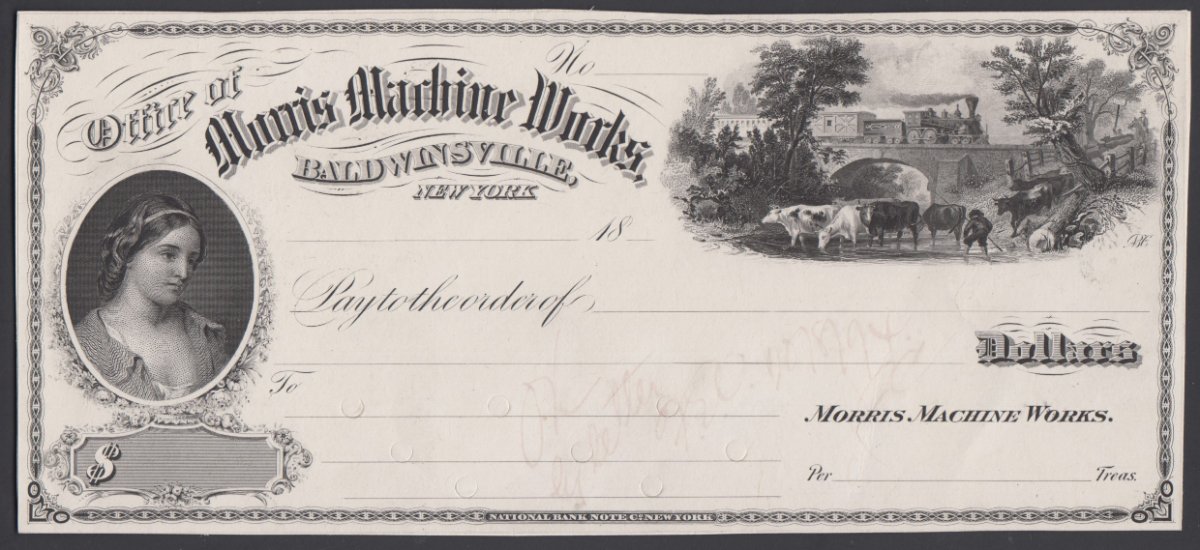 No
Office of
Morris Machine Works,
BALDWINSVILLE,
NEW YORK
18
Pay to the order of
Dollars
To
MORRIS MACHINE WORKS.
$
Per Treas.
NATIONAL BANK NOTE Co. NEW YORK